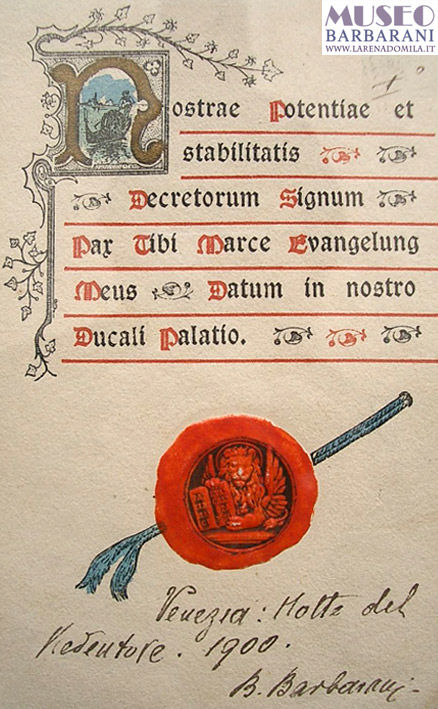 MUSEO
BARBARANI
WWW.LARENADOMILA.IT
1°
Nostrae Potentiae et
stabilitatis
Decretorum Signum
Pax Tibi Marce Evangelung
Meus Datum in nostro
Ducali Palatio.
Venezia: Notte del
Redentore. 1900.
B. Barbarani